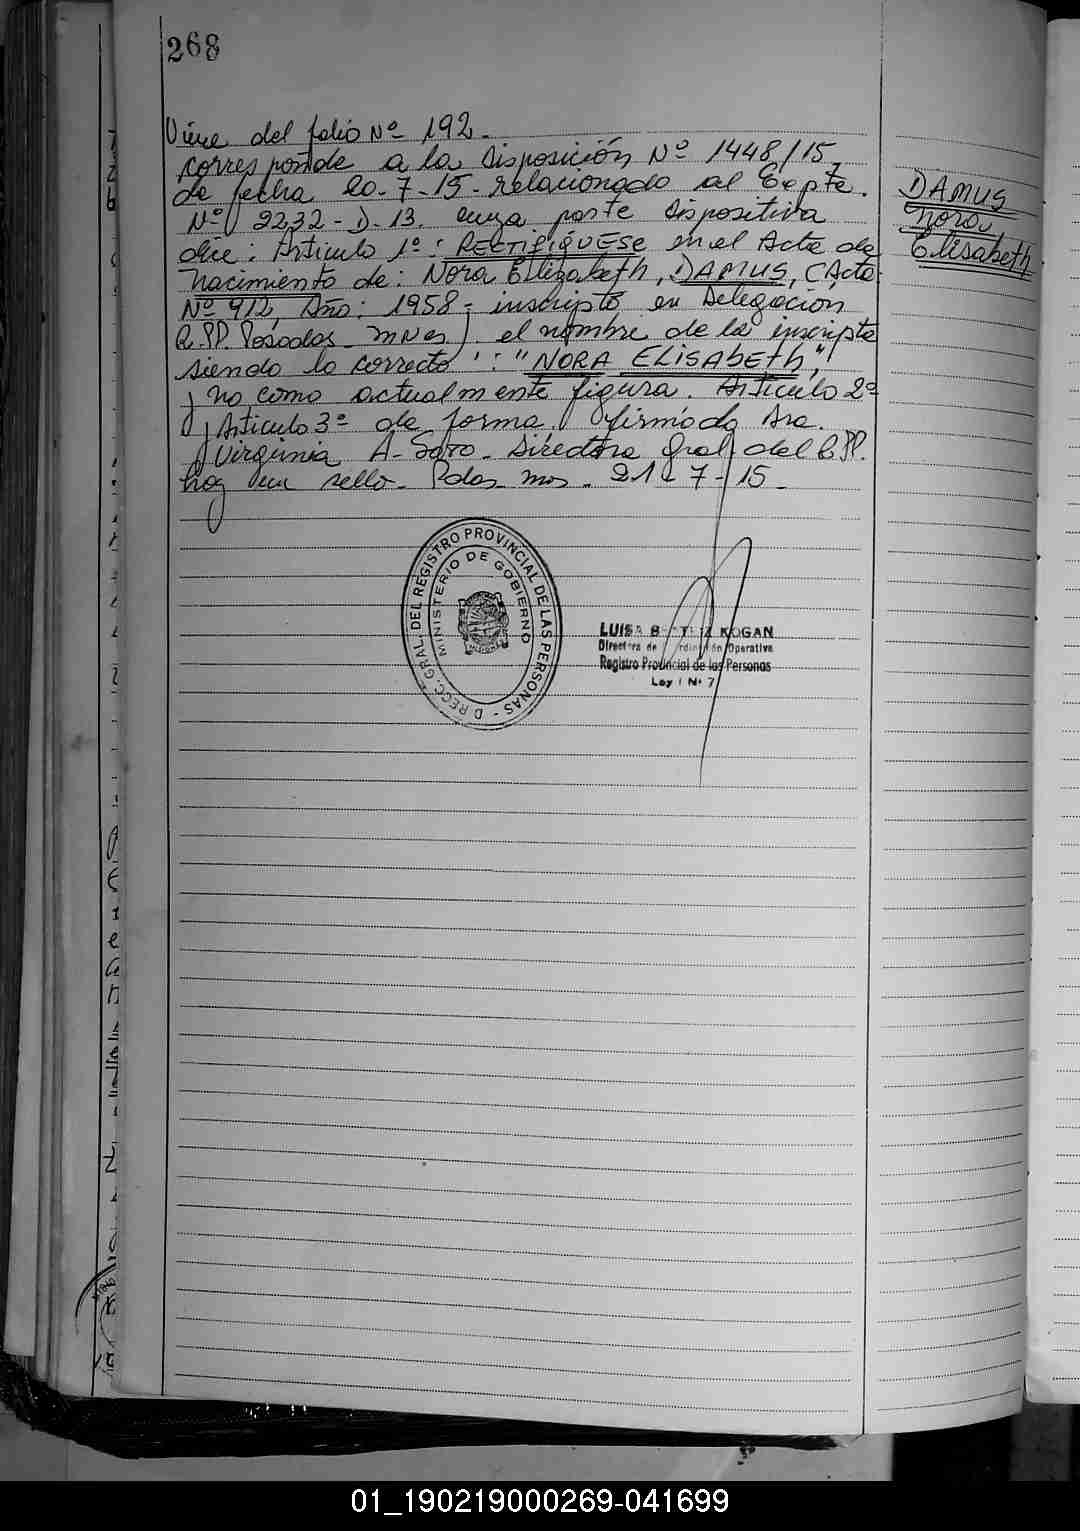 268
Viene del folio Nº 192.-
corresponde a la Disposición Nº 1448/15,
de fecha 20-7-15- relacionado al Expte.
Nº 2232-D-13. cuya parte dispositiva
dice: Artículo 1º: RECTIFIQUESE en el Acta de
Nacimiento de: Nora Elizabeth, DAMUS, (Acta
Nº 912, Año: 1958- inscripto en Delegación
R.PP. Posadas- Mnes.) el nombre de la inscripta
siendo lo correcto: "NORA ELISAbeth,"
y no como actualmente figura. Artículo 2º
y Artículo 3º de forma. firmado Sra.
Virginia A. Dirección Gral. del R.PP.
hay un sello- Pdas. Mnes. 21-7-15-
DAMUS
Nora
Elisabeth
DIRECC. GRAL. DEL REGISTRO PROVINCIAL DE LAS PERSONAS -
MINISTERIO DE GOBIERNO
MISIONES
LUISA KOGAN
Operativa
Registro Provincial de las Personas
Ley I Nº 7
01_190219000269-041699